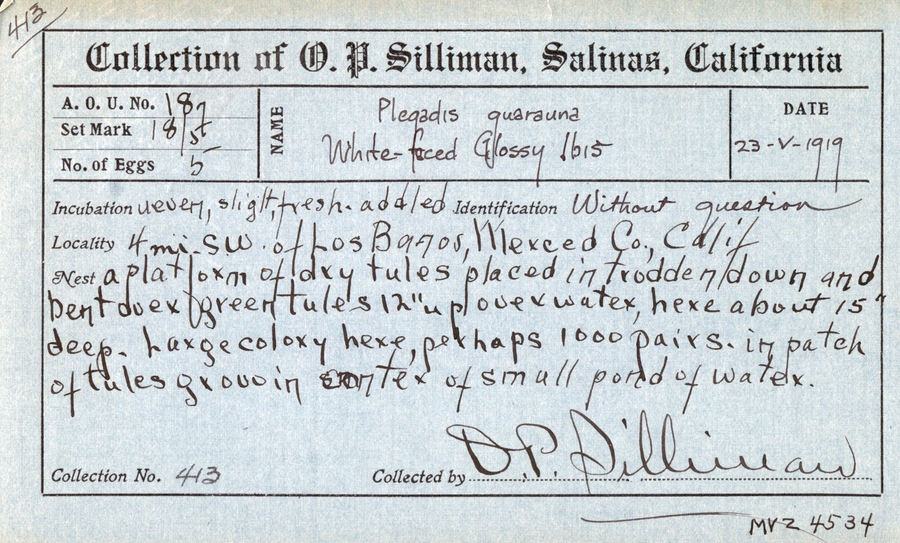 413
Collection of O. P. Silliman, Salinas, California
A. O. U. No. 187
Set Mark 18/5
No. of Eggs 5
NAME
Plegadis guarauna
White-faced Glossy Ibis
DATE
23-V-1919
Incubation ueven, slight, fresh. addled Identification Without question
Locality 4 mi. SW. of Los Banos, Merced Co., Calif
Nest a platform of dry tules placed in trodden down and
bent over green tules 12" up over water, here about 15"
deep. Large colony here, perhaps 1000 pairs. in patch
of tules grow in center of small pond of water.
Collection No. 413
Collected by O.P. Silliman
MVZ 4534